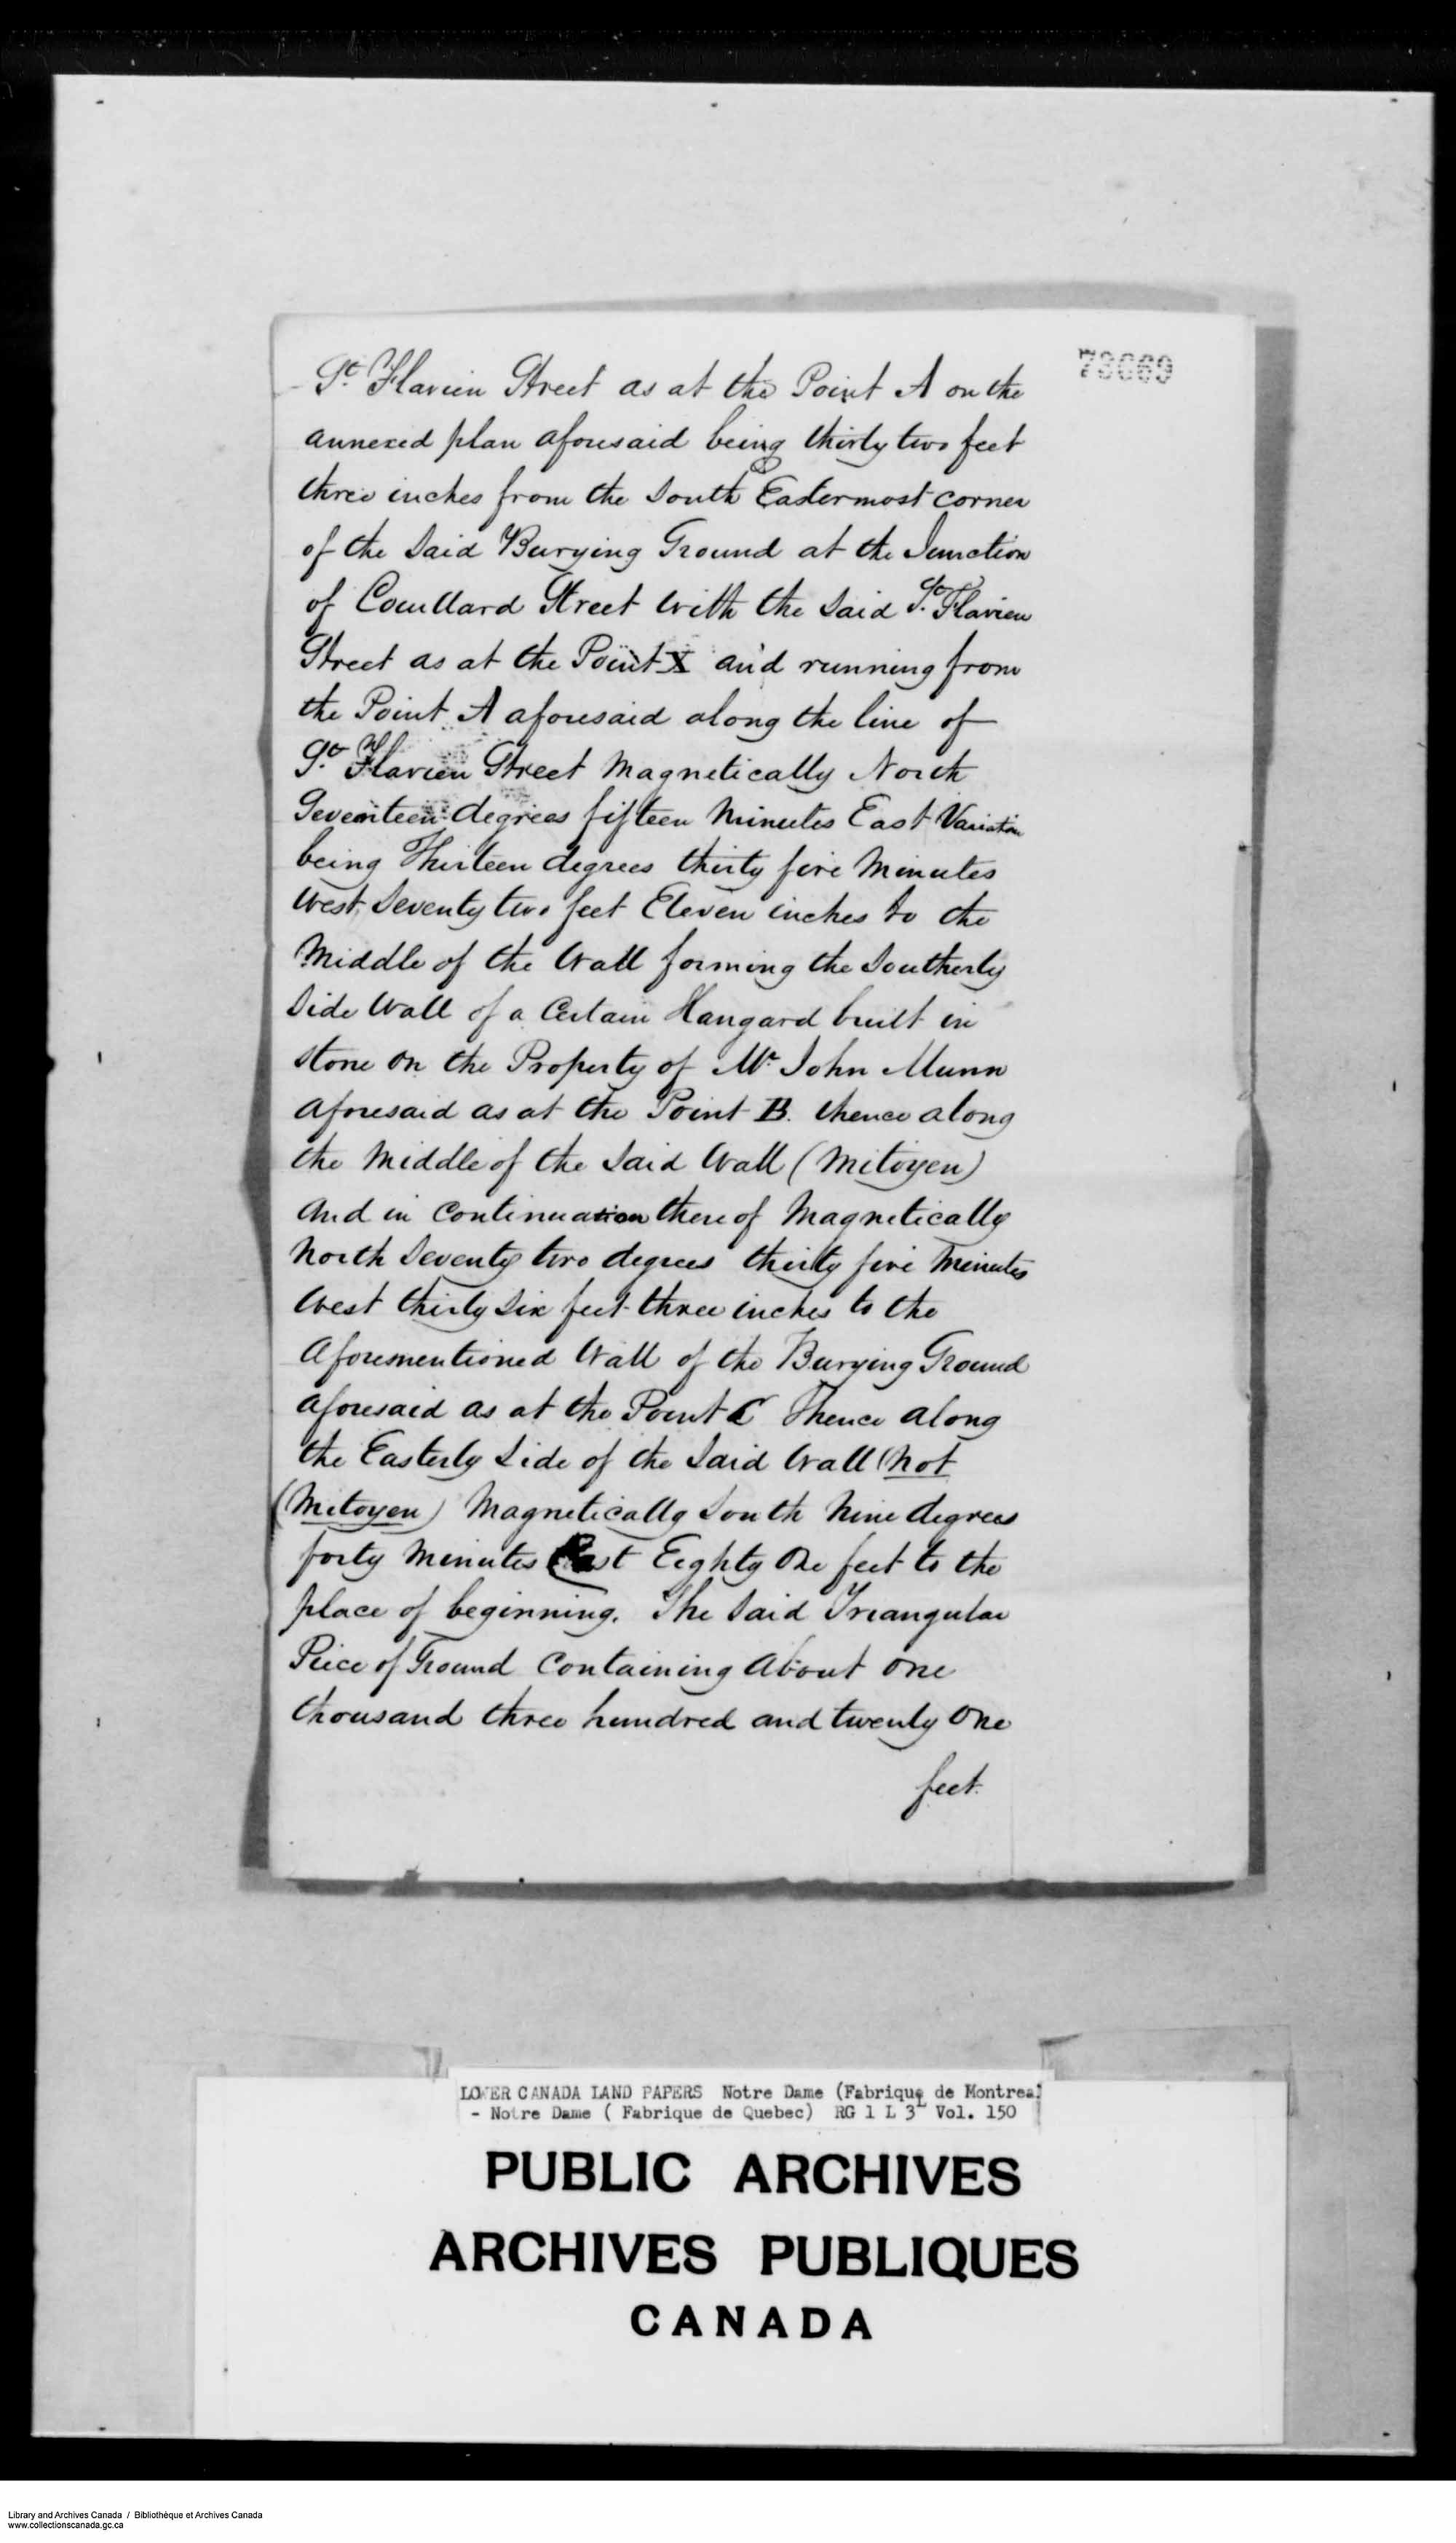 73669
St. Flavien Street as at the Point A on the
annexed plan aforesaid being thirty two feet
three inches from the South Eastermost corner
of the Said Burying Ground at the Junction
of Couillard Street with the Said St. Flavien
Street as at the Point X and running from
the Point A aforesaid along the line of
St. Flavien Street Magnetically North
Seventeen degrees fifteen Minutes East Variation
being Thirteen degrees thirty five Minutes
West, Seventy two feet Eleven inches to the
Middle of the Wall forming the Southerly
Side Wall of a Certain Hangard built in
Stone on the Property of Mr. John Munn
aforesaid as at the Point B. thence along
the Middle of the Said Wall (Mitoyen)
and in Continuation thereof Magnetically
North Seventy two degrees thirty five Minutes
West thirty Six feet three inches to the
aforementioned Wall of the Burying Ground
aforesaid as at the Point C Thence along
the Easterly Side of the Said Wall (not
(Mitoyen) Magnetically South Nine degrees
forty Minutes East Eighty One feet to the
place of beginning. The Said Triangular
Piece of Ground Containing About One
thousand three hundred and twenty One
feet.
LOWER CANADA LAND PAPERS Notre Dame (Fabrique de Montreal
- Notre Dame ( Fabrique de Quebec) RG 1 L 3L Vol. 150
PUBLIC ARCHIVES
ARCHIVES PUBLIQUES
CANADA
Library and Archives Canada / Bibliothèque et Archives Canada
www.collectionscanada.gc.ca